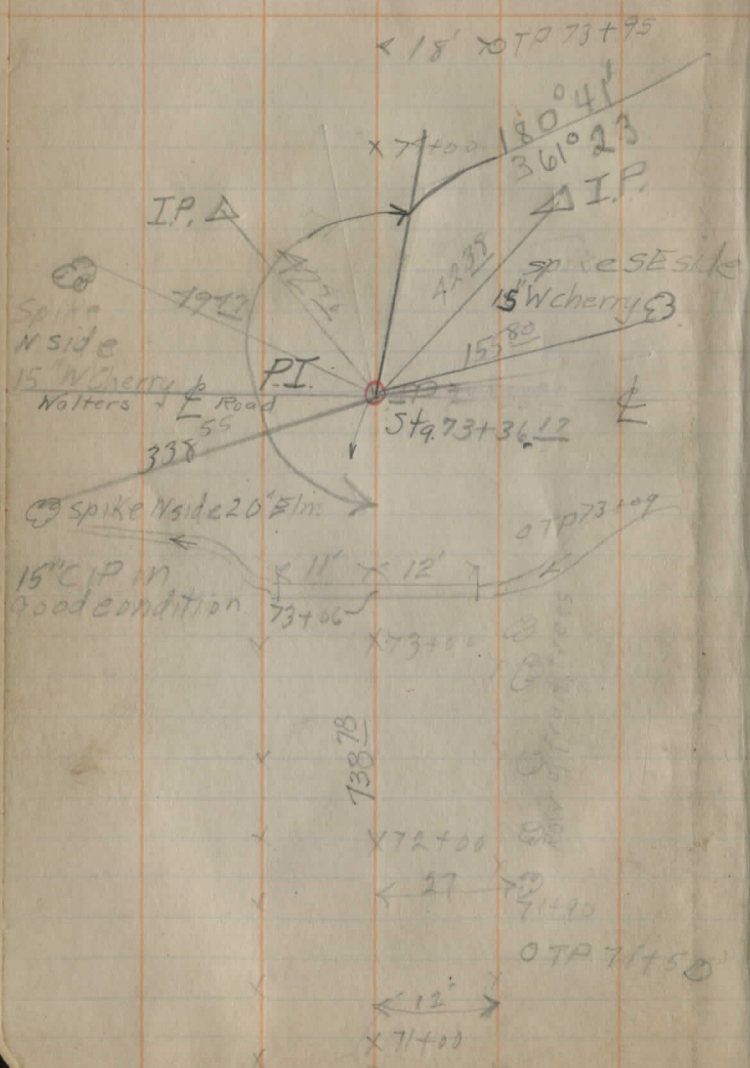 18' O TP 73+95
180° 41'
361° 23
x 7 +00
I.P.
I.P.
42 38
spike SE side
15" W cherry
155 80
Spike
N side
15" W Cherry
P.I.
Wolters ℄ Road
℄
Sta. 73+36.17
338 55
spike N side 20" Elm.
O TP 73+09
15" C I P in
good condition
11' 12'
73+06
x 73+00
738 78
x 72+00
27
71+90
O TP 71+50
12'
x 71+00